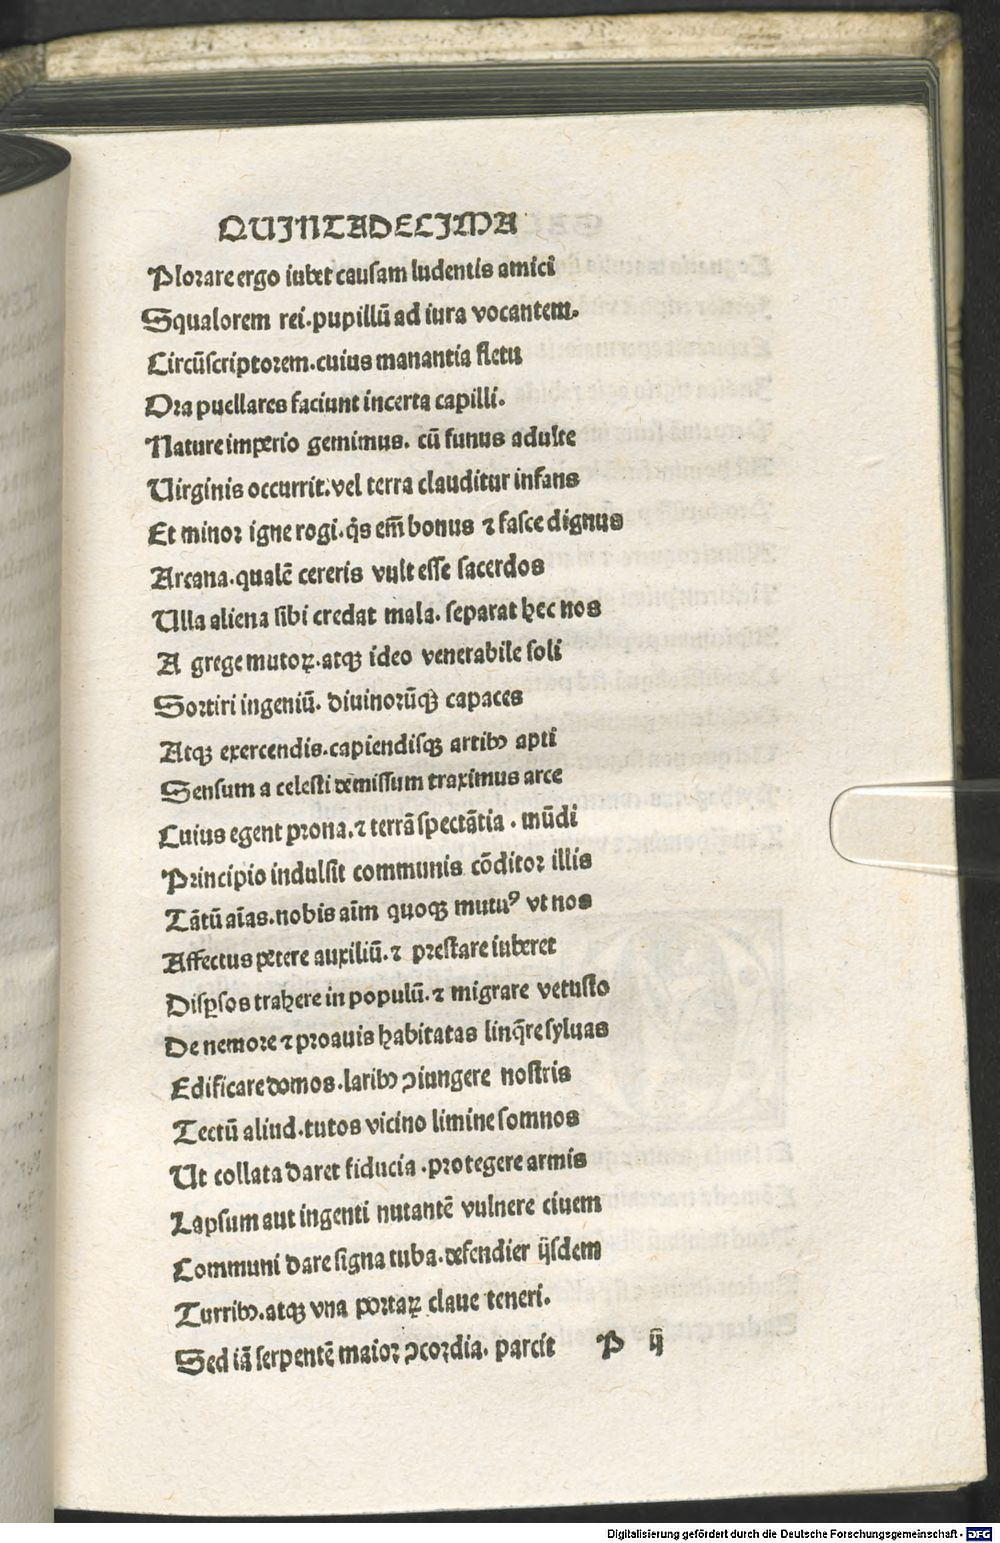 QUINTADECIMA
Plorare ergo iubet causam ludentis amici
Squalorem rei. pupillū ad iura vocantem.
Circūscriptorem. cuius manantia fletu
Ora puellares faciunt incerta capilli.
Nature imperio gemimus. cū funus adulte
Uirginis occurrit. vel terra clauditur infans
Et minor igne rogi. q̄s em̄ bonus ⁊ fasce dignus
Arcana. qualē cereris vult esse sacerdos
Ulla aliena sibi credat mala. separat hec nos
A grege mutoꝝ. atqꝫ ideo venerabile soli
Sortiri ingeniū. diuinorūqꝫ capaces
Atqꝫ exercendis. capiendisqꝫ artibꝰ apti
Sensum a celesti demissum traximus arce
Cuius egent prona. ⁊ terrā spectātia. mūdi
Principio indulsit communis cōditor illis
Tātū aīas. nobis aīm quoqꝫ mutuꝰ vt nos
Affectus petere auxiliū. ⁊ prestare iuberet
Disꝑsos trahere in populū. ⁊ migrare vetusto
De nemore ⁊ proauis habitatas linq̄re syluas
Edificare domos. laribꝰ ꝯiungere nostris
Tectū aliud. tutos vicino limine somnos
Ut collata daret fiducia. protegere armis
Lapsum aut ingenti nutantē vulnere ciuem
Communi dare signa tuba. defendier ijsdem
Turribꝰ. atqꝫ vna portaꝝ claue teneri.
Sed iā serpentē maior ꝯcordia. parcit P ij
Digitalisierung gefördert durch die Deutsche Forschungsgemeinschaft - DFG